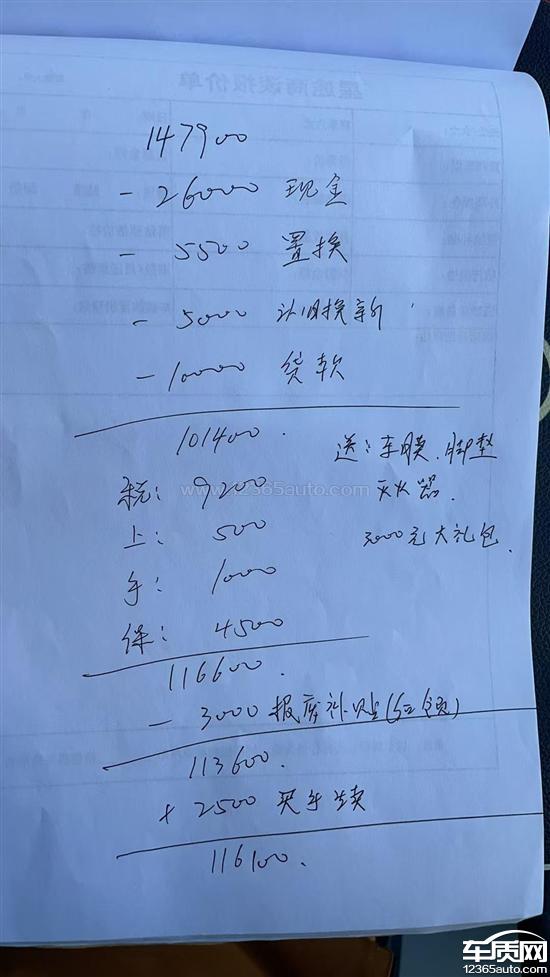 星途商谈报价单
147900
- 26000 现金
- 5500 置换
- 5000 以旧换新
- 10000 贷款
101400.
送: 车膜、脚垫
www.12365auto.com
税: 9200
灭火器.
上: 500
3000元大礼包.
手: 1000
保: 4500
116600.
- 3000 报废补贴
113600.
+ 2500
116100.
车质网
12365auto.com